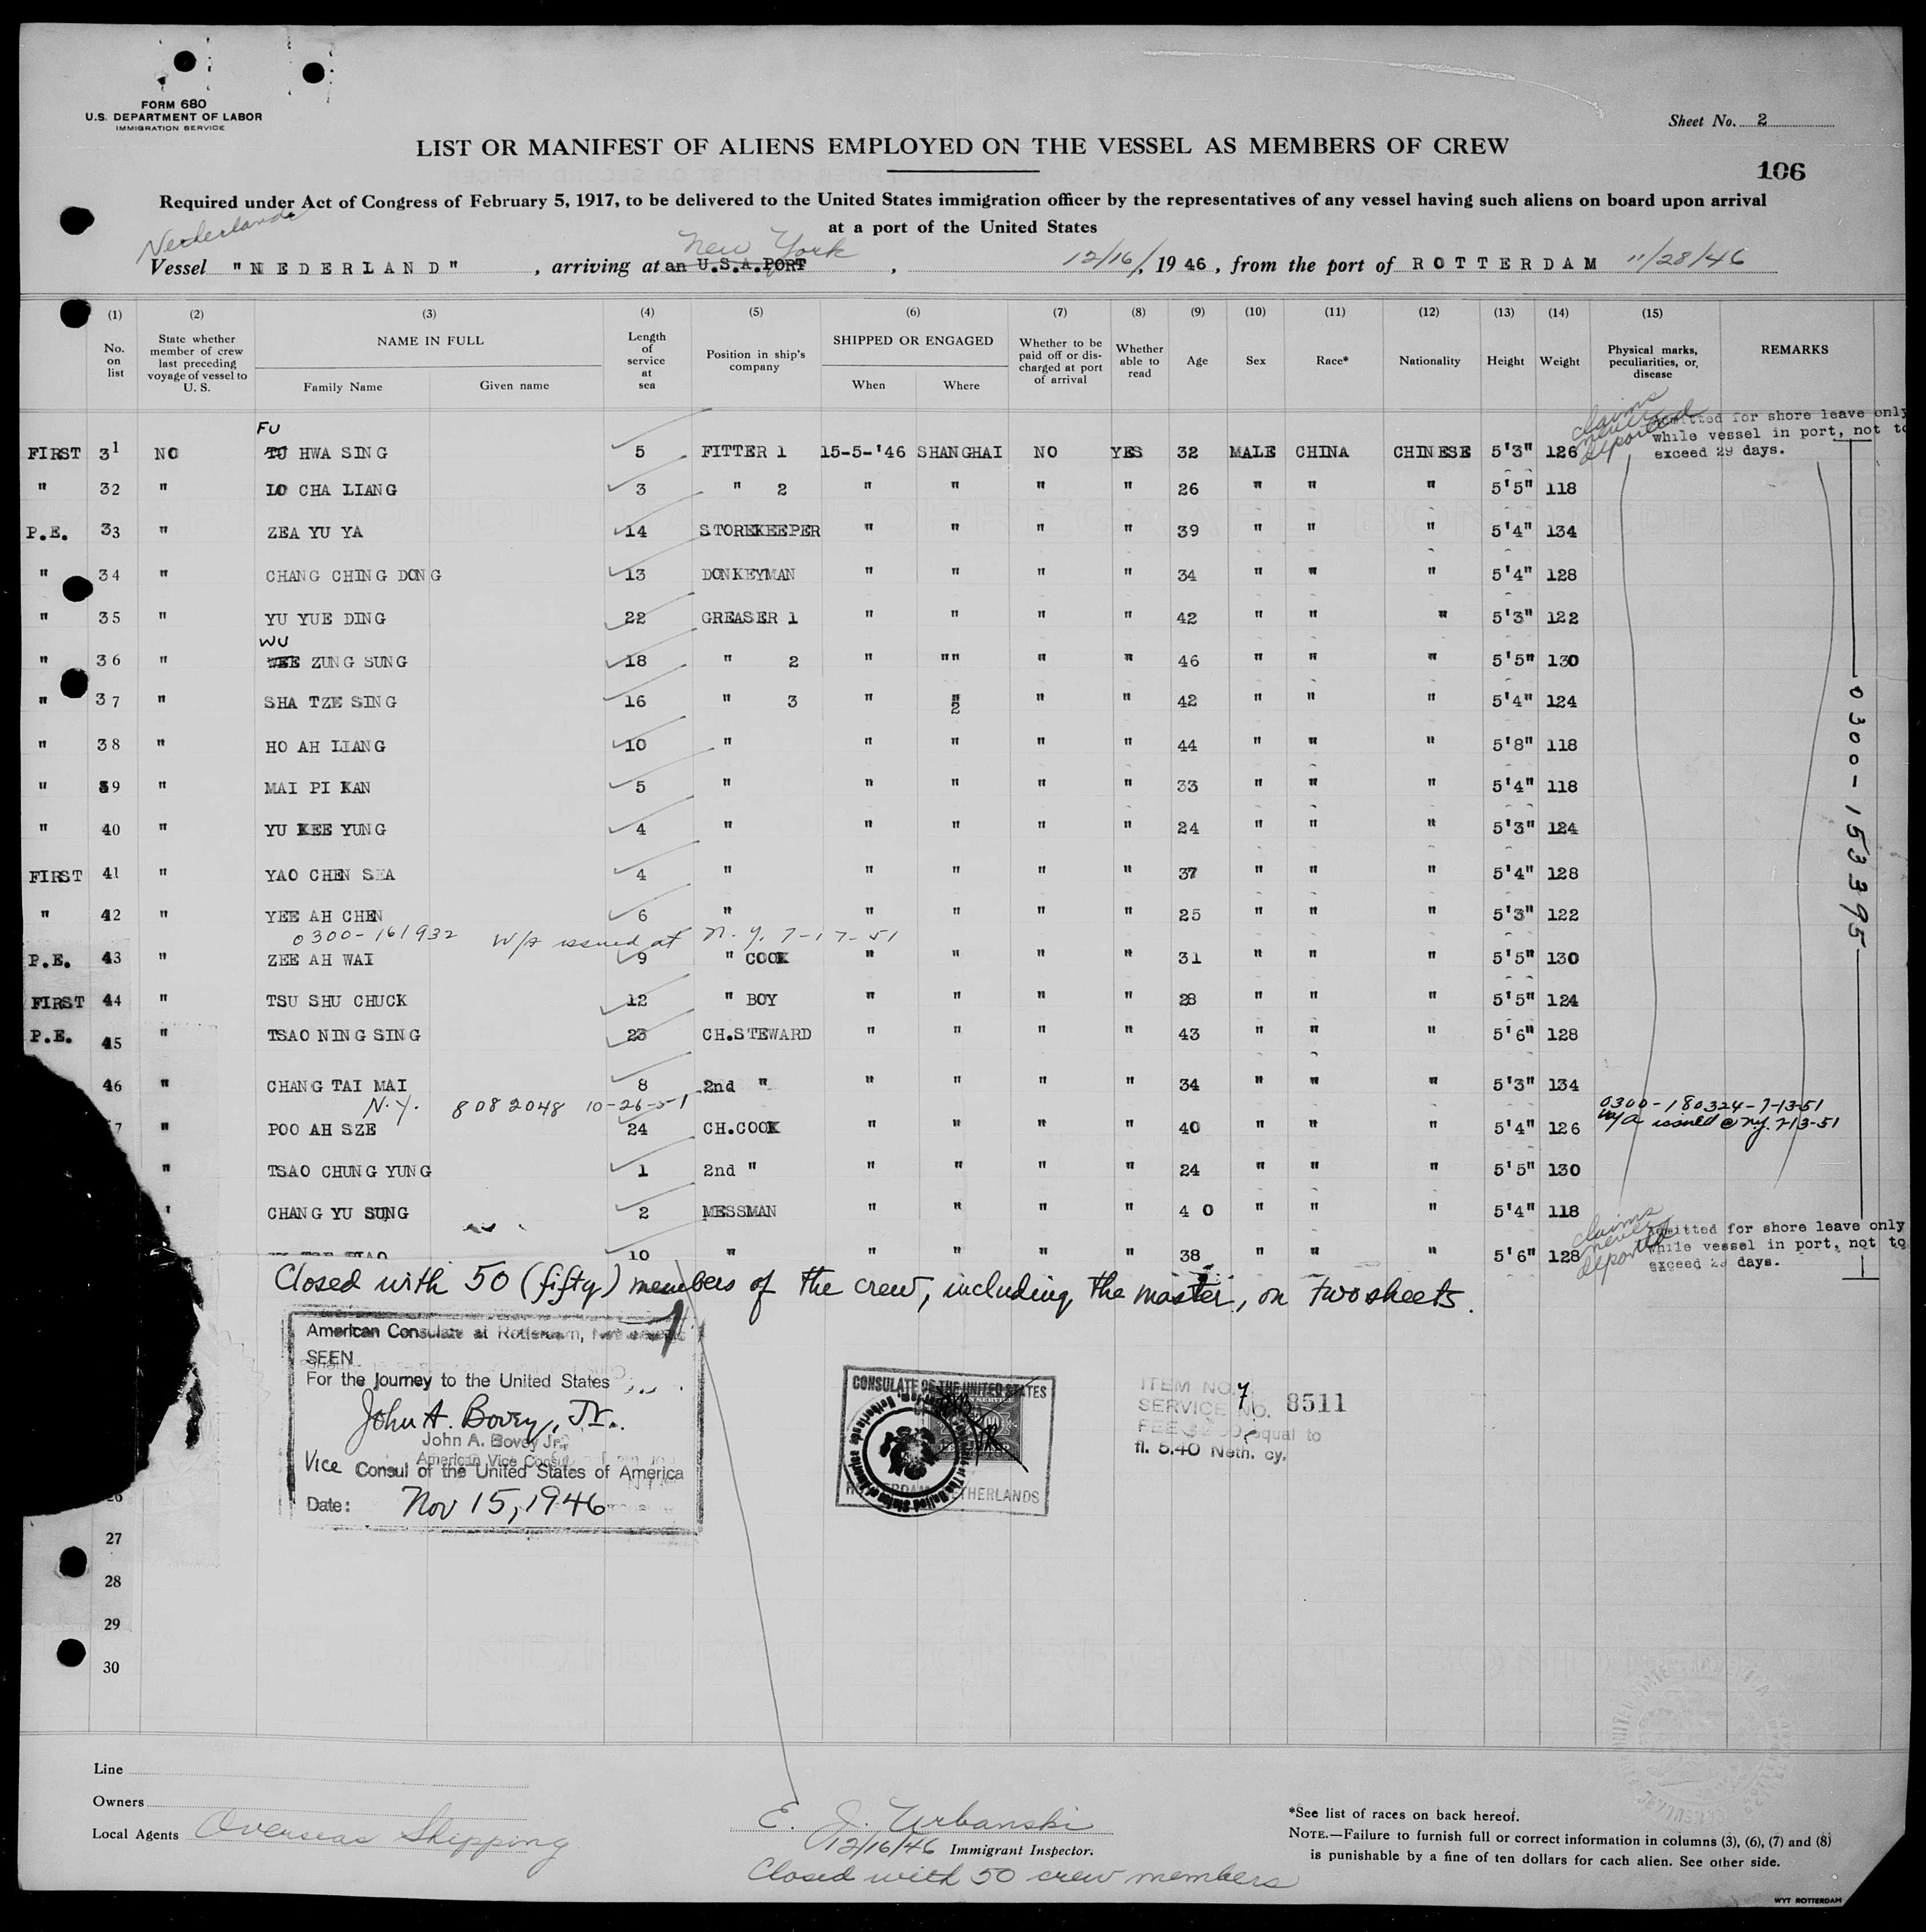 FORM 680
U.S. DEPARTMENT OF LABOR
IMMIGRATION SERVICE
Sheet No. 2
LIST OR MANIFEST OF ALIENS EMPLOYED ON THE VESSEL AS MEMBERS OF CREW
106
Required under Act of Congress of February 5, 1917, to be delivered to the United States immigration officer by the representatives of any vessel having such aliens on board upon arrival
at a port of the United States
Nederland
New York
Vessel "NEDERLAND", arriving at an U.S.A.PORT, 12/16, 1946, from the port of ROTTERDAM 11/28/46
(1) (2) (3) (4) (5) (6) (7) (8) (9) (10) (11) (12) (13) (14) (15)
No. on list
State whether member of crew last preceding voyage of vessel to U. S.
NAME IN FULL
Family Name Given name
Length of service at sea
Position in ship's company
SHIPPED OR ENGAGED
When Where
Whether to be paid off or discharged at port of arrival
Whether able to read
Age
Sex
Race*
Nationality
Height
Weight
Physical marks, peculiarities, or, disease
REMARKS
claims never deported
Admitted for shore leave only
while vessel in port, not to
exceed 29 days.
FU
FIRST 31 NO TU HWA SING 5 FITTER 1 15-5-'46 SHANGHAI NO YES 32 MALE CHINA CHINESE 5'3" 126
" 32 " LO CHA LIANG 3 " 2 " " " " 26 " " " 5'5" 118
P.E. 33 " ZEA YU YA 14 STOREKEEPER " " " " 39 " " " 5'4" 134
" 34 " CHANG CHING DONG 13 DONKEYMAN " " " " 34 " " " 5'4" 128
" 35 " YU YUE DING 22 GREASER 1 " " " " 42 " " " 5'3" 122
WU
" 36 " WEE ZUNG SUNG 18 " 2 " "" " " 46 " " " 5'5" 130
" 37 " SHA TZE SING 16 " 3 " " " " 42 " " " 5'4" 124
" 38 " HO AH LIANG 10 " " " " " 44 " " " 5'8" 118
" 39 " MAI PI KAN 5 " " " " " 33 " " " 5'4" 118
" 40 " YU KEE YUNG 4 " " " " " 24 " " " 5'3" 124
FIRST 41 " YAO CHEN SEA 4 " " " " " 37 " " " 5'4" 128
" 42 " YEE AH CHEN 6 " " " " " 25 " " " 5'3" 122
0300-161932 W/A issued at N.Y. 7-17-51
P.E. 43 " ZEE AH WAI 9 " COOK " " " " 31 " " " 5'5" 130
FIRST 44 " TSU SHU CHUCK 12 " BOY " " " " 28 " " " 5'5" 124
P.E. 45 " TSAO NING SING 23 CH.STEWARD " " " " 43 " " " 5'6" 128
46 " CHANG TAI MAI 8 2nd " " " " " 34 " " " 5'3" 134
N.Y. 8082048 10-26-51
7 " POO AH SZE 24 CH.COOK " " " " 40 " " " 5'4" 126
0300-180324-7-13-51
W/A issued @ N.Y. 7-13-51
" TSAO CHUNG YUNG 1 2nd " " " " " 24 " " " 5'5" 130
" CHANG YU SUNG 2 MESSMAN " " " " 40 " " " 5'4" 118
10 " " " " " 38 " " " 5'6" 128
claims never deported
Admitted for shore leave only
while vessel in port, not to
exceed 29 days.
0300-153395
Closed with 50 (fifty) members of the crew, including the master, on two sheets.
American Consulate at Rotterdam, Netherlands
SEEN
For the journey to the United States
John A. Bovey, Jr.
John A. Bovey Jr.
American Vice Consul
Vice Consul of the United States of America
Date: Nov 15, 1946
CONSULATE OF THE UNITED STATES
ROTTERDAM NETHERLANDS
ITEM NO. 7
SERVICE NO. 8511
equal to
fl. 5.40 Neth. cy.
26
27
28
29
30
Line
Owners
Local Agents Overseas Shipping
E. J. Urbanski
12/16/46 Immigrant Inspector.
Closed with 50 crew members
*See list of races on back hereof.
NOTE.—Failure to furnish full or correct information in columns (3), (6), (7) and (8)
is punishable by a fine of ten dollars for each alien. See other side.
WYT ROTTERDAM